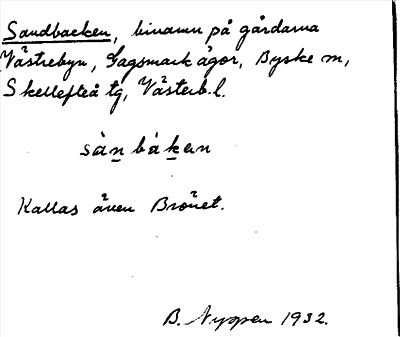 Sandbacken, binamn på gårdarna
Västrebyn, Gagsmark ägor, Byske sn,
Skellefteå tg, Västerb. l.
sàn̲bàk̲en
Kallas även Brånet.
B. Nyppen 1932.